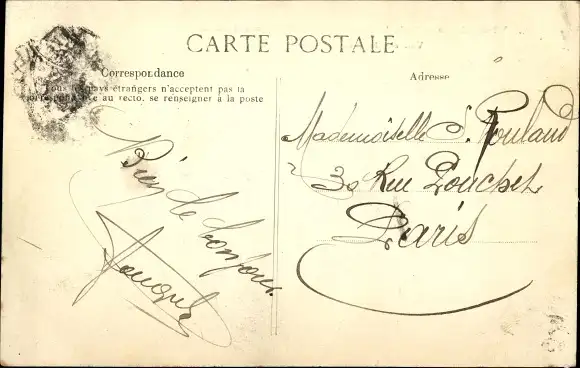 CARTE POSTALE
Correspondance
Tous les pays étrangers n'acceptent pas la
correspondance au recto, se renseigner à la poste
Bien de bonjour
Adresse
Mademoiselle S. Rouland
30 Rue Pouchet
Paris